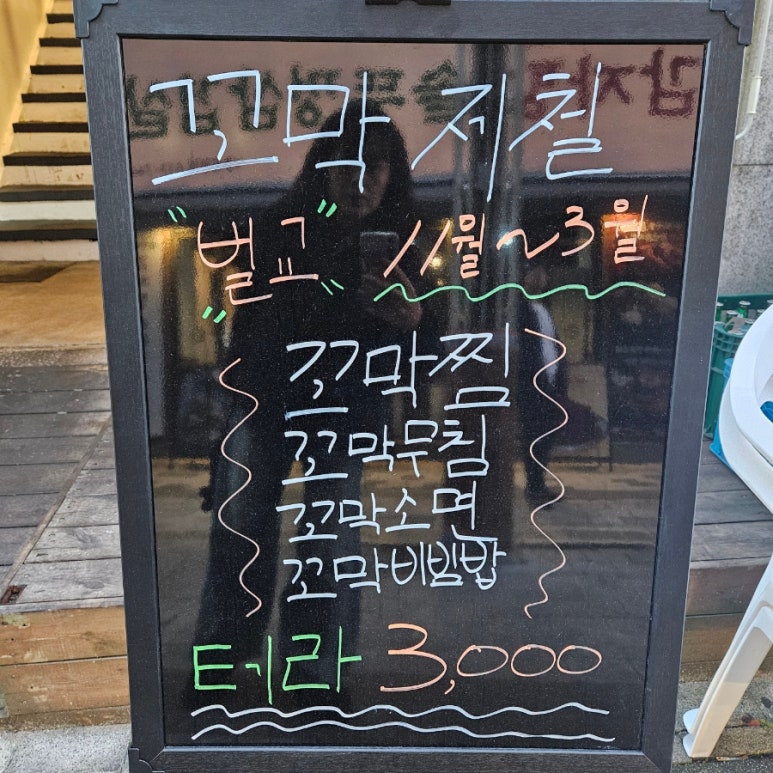 꼬막 제철
"벌교" 11월~3월
꼬막찜
꼬막무침
꼬막소면
꼬막비빔밥
테라 3,000